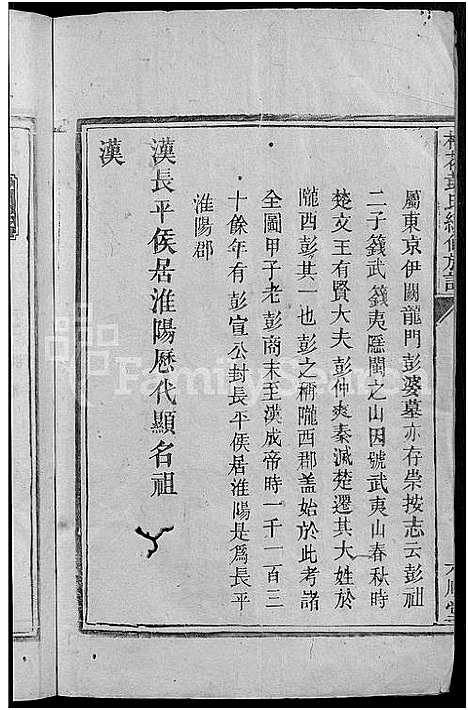 屬東京伊闕龍門彭婆墓亦存崇按志云彭祖
二子籛武籛夷隱閩之山因號武夷山春秋時
楚文王有賢大夫彭仲爽秦滅楚遷其大姓於
隴西彭其一也彭之稱隴西郡盖始於此考諸
全圖甲子老彭商末至漢成帝時一千一百三
十餘年有彭宣公封長平侯居淮陽是爲長平
淮陽郡
漢長平侯居淮陽歷代顯名祖
漢
FamilySearch